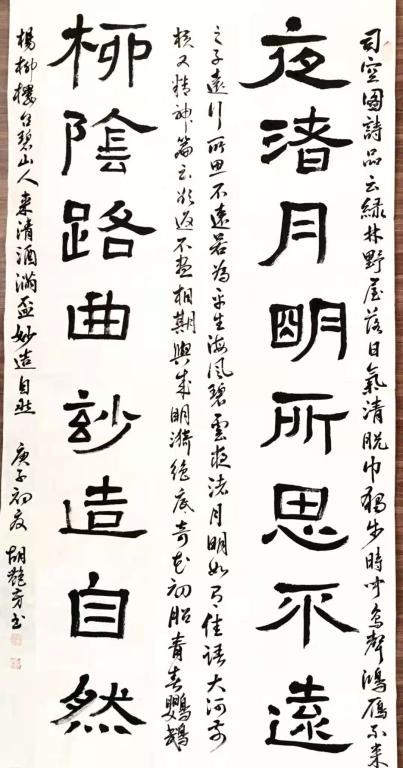 司空圖詩品云綠林野屋落日氣清脫巾獨步時聞鳥聲鴻雁不来
夜渚月明所思不遠
之子遠行所思不遠若為平生海風碧雲夜渚月明如有佳語大河前
横又精神篇云欲返不盡相期與来明漪絕底奇花初胎青春鸚鵡
柳陰路曲玅造自然
楊柳樓台碧山人来清酒滿盃妙造自然 庚子初夏 胡